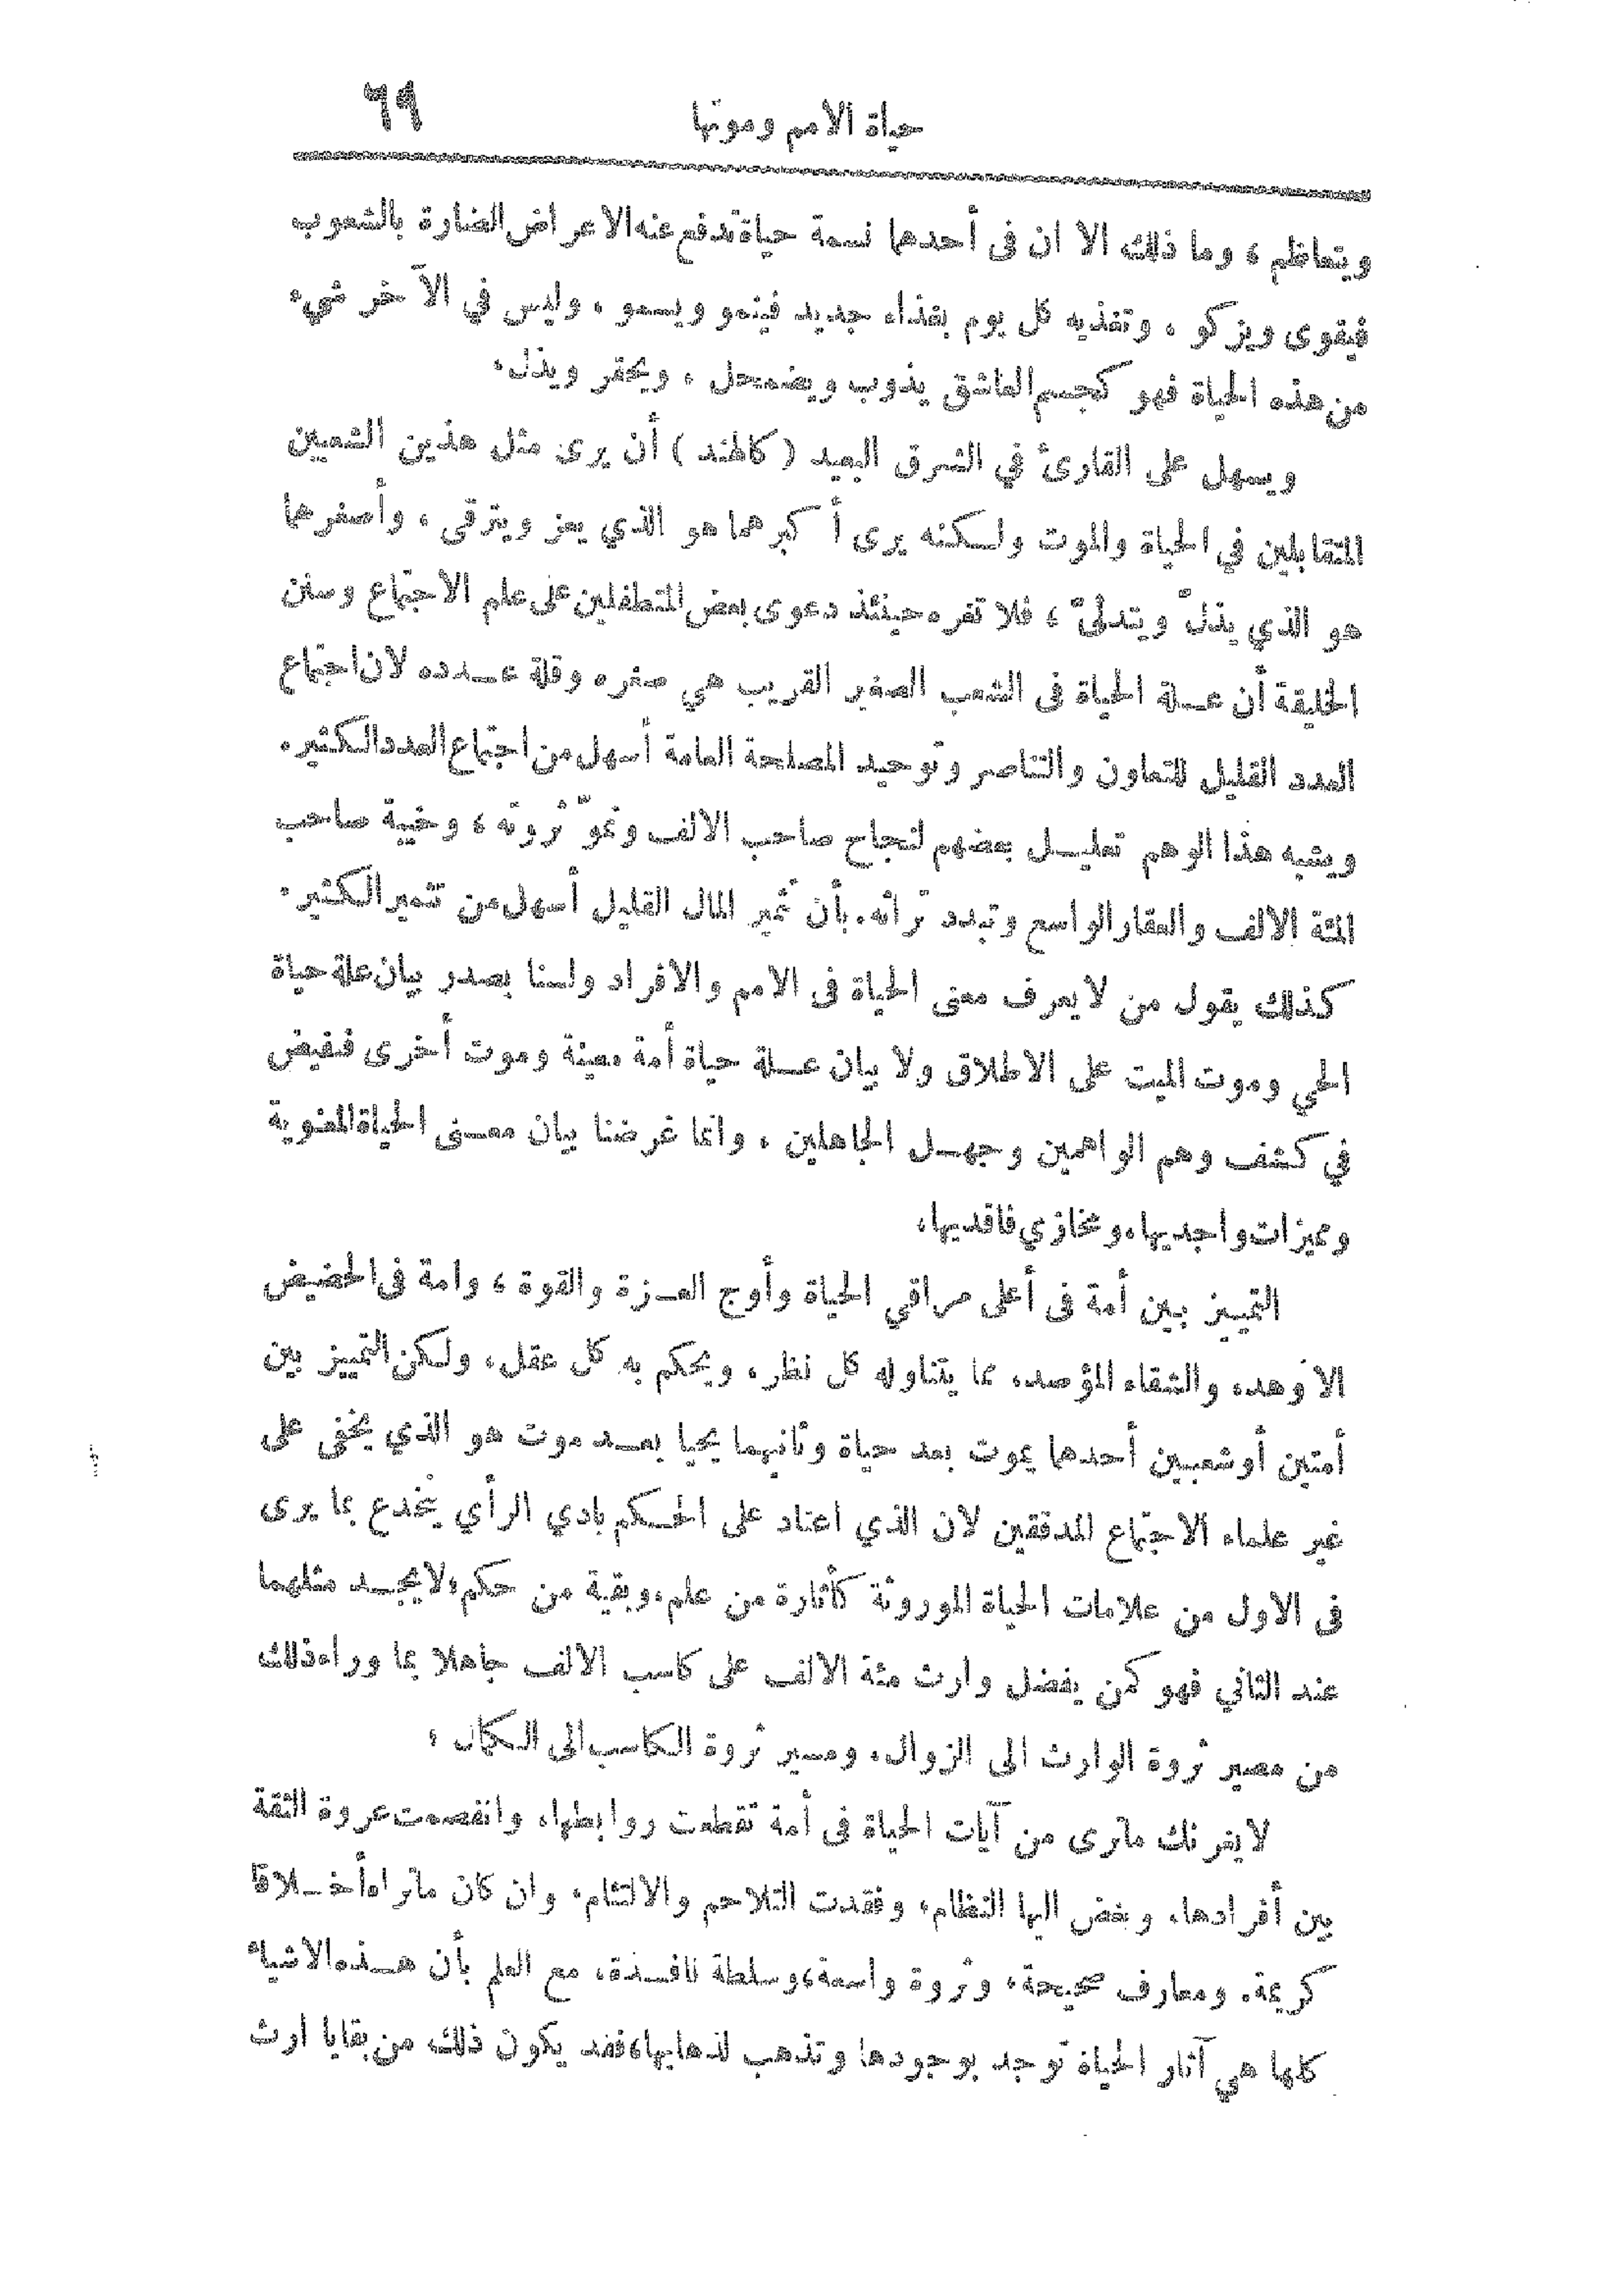 حياة الامم وموتها ٦٩
ويتعاظم ، وما ذلك الا ان فى أحدهما نسمة حياة تدفع عنه الاعراض الضارة بالشعوب
فيقوى ويزكو ، وتغذيه كل يوم بغذاء جديد فينمو ويسمو ، وليس في الآخر شيء
من هذه الحياة فهو كجسم العاشق يذوب ويضمحل ، ويحقر ويذل ،
ويسهل على القارئ في الشرق البعيد ( كالهند ) أن يرى مثل هذين الشعبين
المتقابلين في الحياة والموت ولكنه يرى أكبرهما هو الذي يعز ويترقى ، وأصغرهما
هو الذي يذلّ ويتدلّى ، فلا تغره حينئذ دعوى بعض المتطفلين على علم الاجتماع وسنن
الخليقة أن عـلة الحياة فى الشعب الصغير القريب هي صغره وقلة عـدده لان اجتماع
العدد القليل للتعاون والتناصر وتوحيد المصلحة العامة أسهل من اجتماع العدد الكثير .
ويشبه هذا الوهم تعليـل بعضهم لنجاح صاحب الالف ونموّ ثروته ، وخيبة صاحب
المئة الالف والعقار الواسع وتبدد تراثه . بأن تثمير المال القليل أسهل من تثمير الكثير .
كذلك يقول من لا يعرف معنى الحياة فى الامم والافراد ولسنا بصدر بيان علة حياة
الحي وموت الميت على الاطلاق ولا بيان عـلة حياة أمة معينة وموت أخرى فنفيض
في كشف وهم الواهمين وجهـل الجاهلين ، وانما غرضنا بيان معـنى الحياة المعنوية
ومميزات واجديها ، ومخازي فاقديها ،
التميـيز بـين أمة فى أعلى مراقي الحياة وأوج العـزة والقوة ، وامة فى الحضيض
الاوهد ، والشقاء المؤصد ، مما يتناوله كل نظر ، ويحكم به كل عقل ، ولكن التمييز بين
أمتين أو شعبـين أحدهما يموت بعد حياة وثانيهما يحيا بعـد موت هو الذي يخفى على
غير علماء الاجتماع المدققين لان الذي اعتاد على الحـكم بادي الرأي ينخدع بما يرى
فى الاول من علامات الحياة الموروثة كأثارة من علم ، وبقية من حكم ، لا يجـد مثلهما
عند الثاني فهو كمن يفضل وارث مئة الالف على كاسب الالف جاهلا بما وراء ذلك
من مصير ثروة الوارث الى الزوال ، ومسير ثروة الكاسب الى الكمال ،
لا يغرنك ماترى من آيات الحياة فى أمة تقطعت روابطها ، وانفصمت عروة الثقة
بين أفرادها ، وبغض اليها النظام ، وفقدت التلاحم والالتئام ، وان كان ماتراه أخـلاقا
كريمة ، ومعارف صحيحة ، وثروة واسعة ، وسلطة نافـذة ، مع العلم بأن هـذه الاشياء
كلها هي آثار الحياة توجد بوجودها وتذهب لذهابها ، فقد يكون ذلك من بقايا ارث